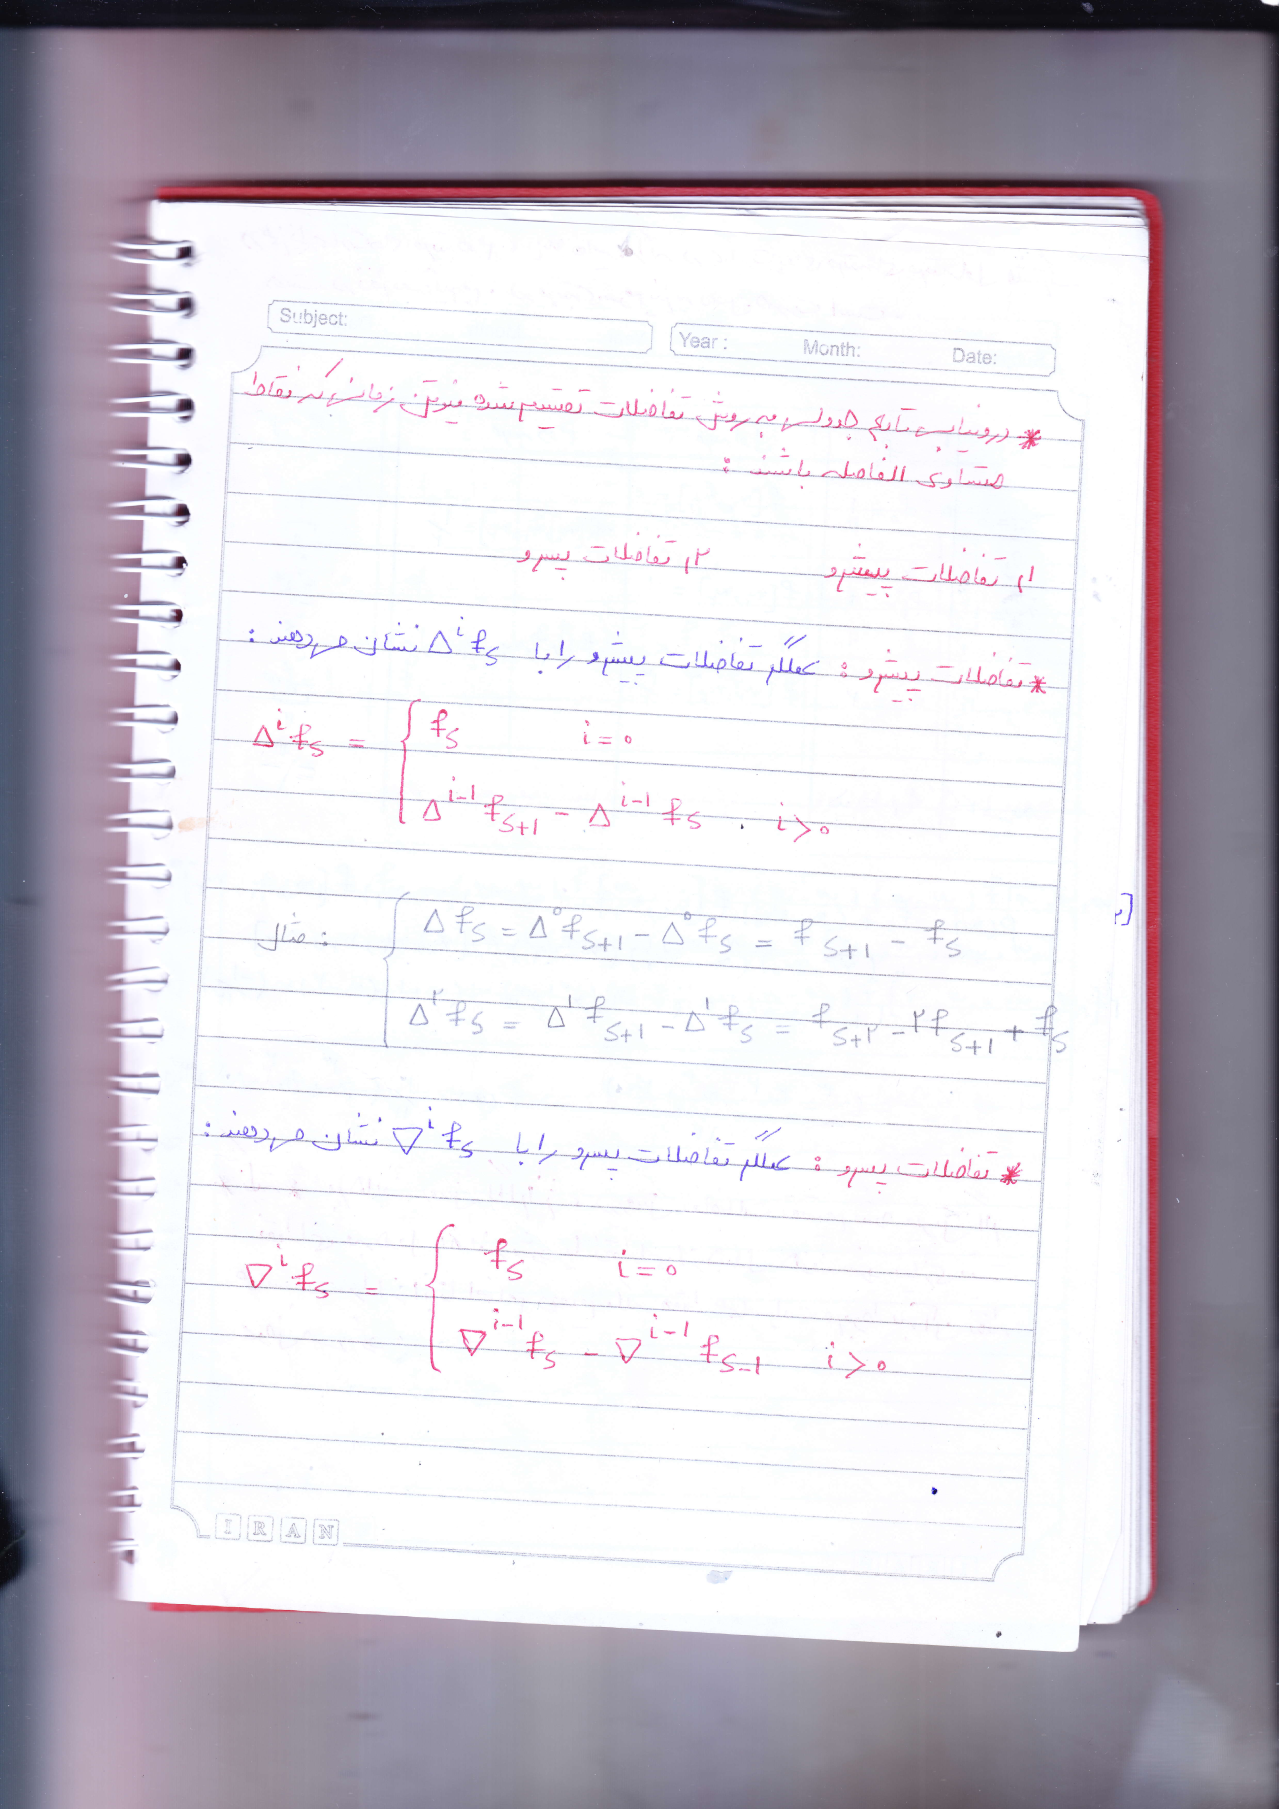 Subject:
Year :  Month:  Date:
* درونیابی تابع جدولی به روش تفاضلات تقسیم شده نیوتن زمانی که نقاط
متساوی الفاصله باشند :
۱) تفاضلات پیشرو  ۲) تفاضلات پسرو
* تفاضلات پیشرو : عملگر تفاضلات پیشرو را با Δ^i f_s نشان می‌دهند :
Δ^i f_s = { f_s  i = 0
Δ^{i-1} f_{s+1} - Δ^{i-1} f_s . i > 0
مثال : { Δ f_s = Δ^0 f_{s+1} - Δ^0 f_s = f_{s+1} - f_s
Δ^۲ f_s = Δ^1 f_{s+1} - Δ^1 f_s = f_{s+۲} - ۲f_{s+1} + f_s
* تفاضلات پسرو : عملگر تفاضلات پسرو را با ∇^i f_s نشان می‌دهند :
∇^i f_s = { f_s  i = 0
∇^{i-1} f_s - ∇^{i-1} f_{s-1}  i > 0
IRAN